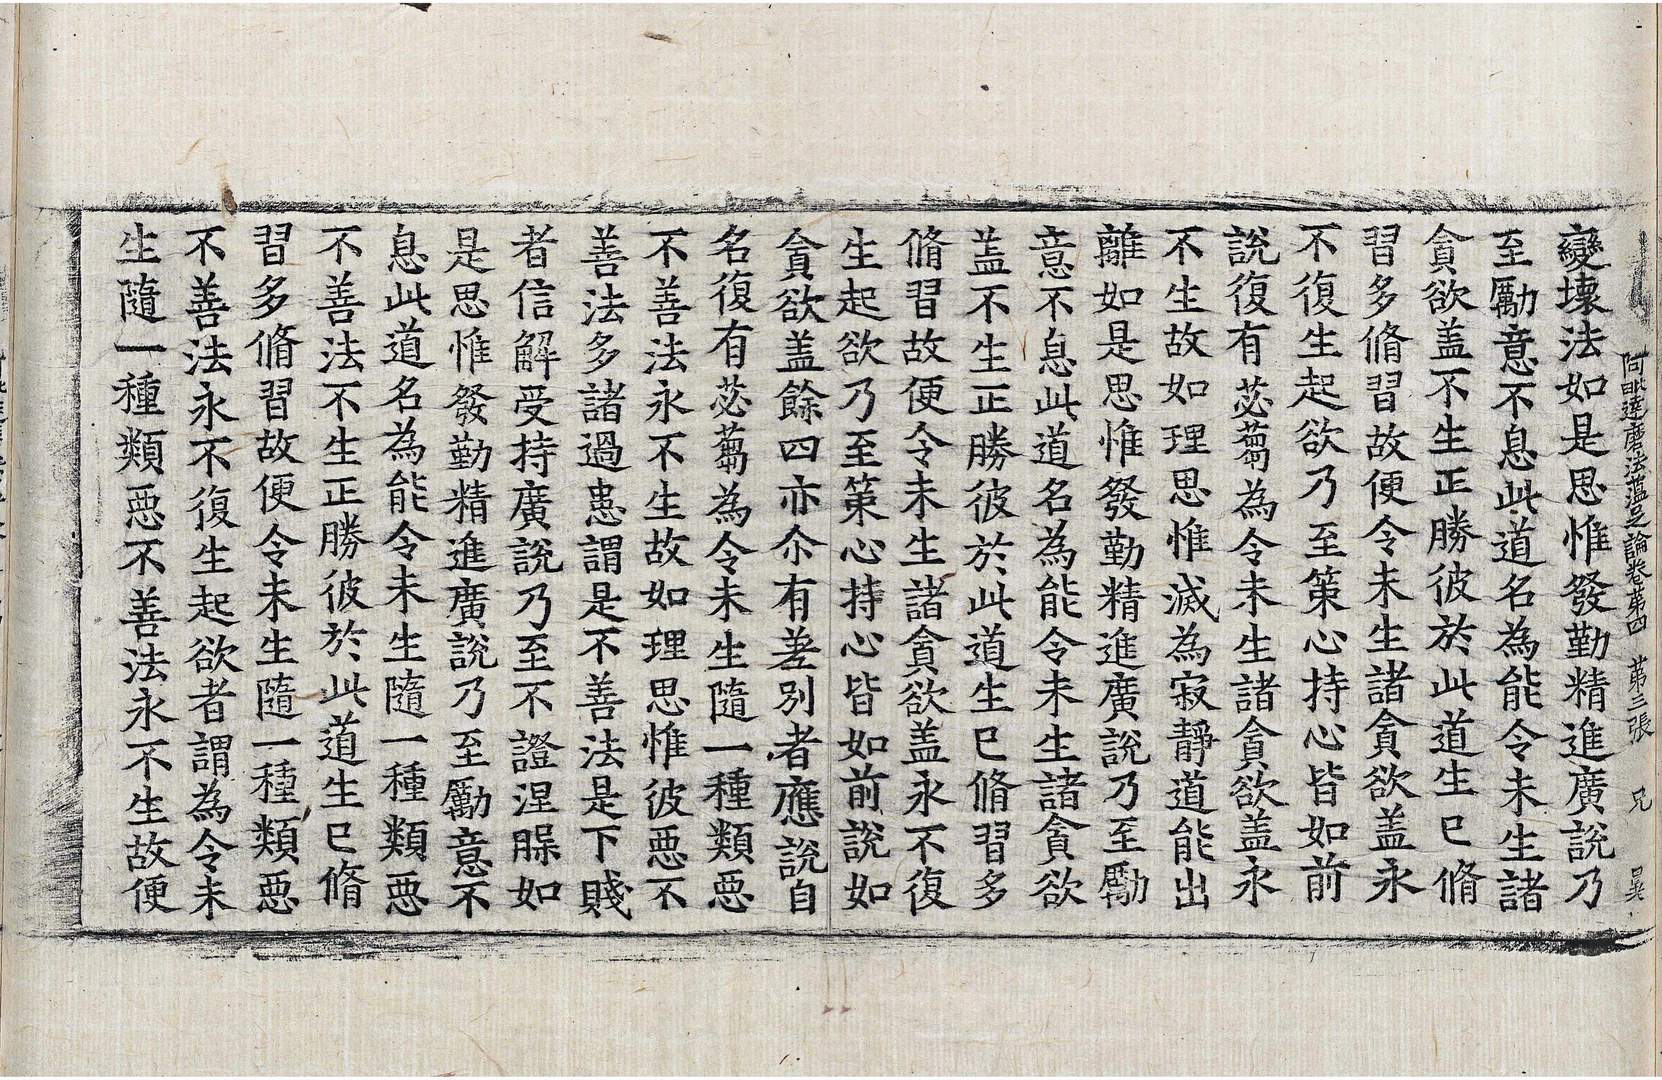 阿毗達磨法蘊足論卷第四 第三張 兄 吴
變壞法如是思惟發勤精進廣說乃
至勵意不息此道名為能令未生諸
貪欲盖不生正勝彼於此道生已脩
習多脩習故便令未生諸貪欲盖永
不復生起欲乃至策心持心皆如前
說復有苾蒭為令未生諸貪欲盖永
不生故如理思惟滅為寂靜道能出
離如是思惟發勤精進廣說乃至勵
意不息此道名為能令未生諸貪欲
盖不生正勝彼於此道生已脩習多
脩習故便令未生諸貪欲盖永不復
生起欲乃至策心持心皆如前說如
貪欲盖餘四亦尒有差別者應說自
名復有苾蒭為令未生隨一種類惡
不善法永不生故如理思惟彼惡不
善法多諸過患謂是不善法是下賤
者信解受持廣說乃至不證涅槃如
是思惟發勤精進廣說乃至勵意不
息此道名為能令未生隨一種類惡
不善法不生正勝彼於此道生已脩
習多脩習故便令未生隨一種類惡
不善法永不復生起欲者謂為令未
生隨一種類惡不善法永不生故便